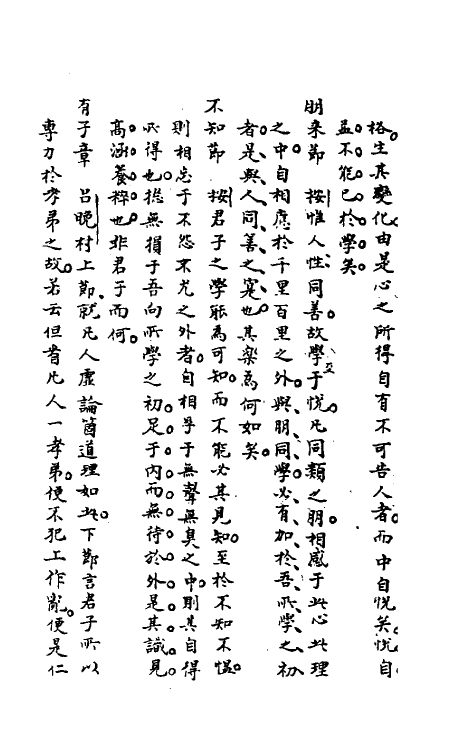 格生其變化由是心之所得自有不可告人者而中自悅矣悅自
益不能已於學矣
朋來節　按惟人性同善故學于悅凡同類之朋相感于此心此理
之中自相應於千里百里之外與朋同學必有加於吾所學之初
者是與人同善之實也其樂為何如矣
不知節　按君子之學祇為可知而不能必其見知至於不知不慍
則相忘于不怨不尤之外者自相孚于無聲無臭之中則其自得
所得也總無損于吾向所學之初足于內而無待於外是其識見
高涵養粹也非君子而何
有子章　呂晚村上節就凡人虛論箇道理如此下節言君子所以
專力於孝弟之故若云但看凡人一孝弟便不犯上作亂便是仁